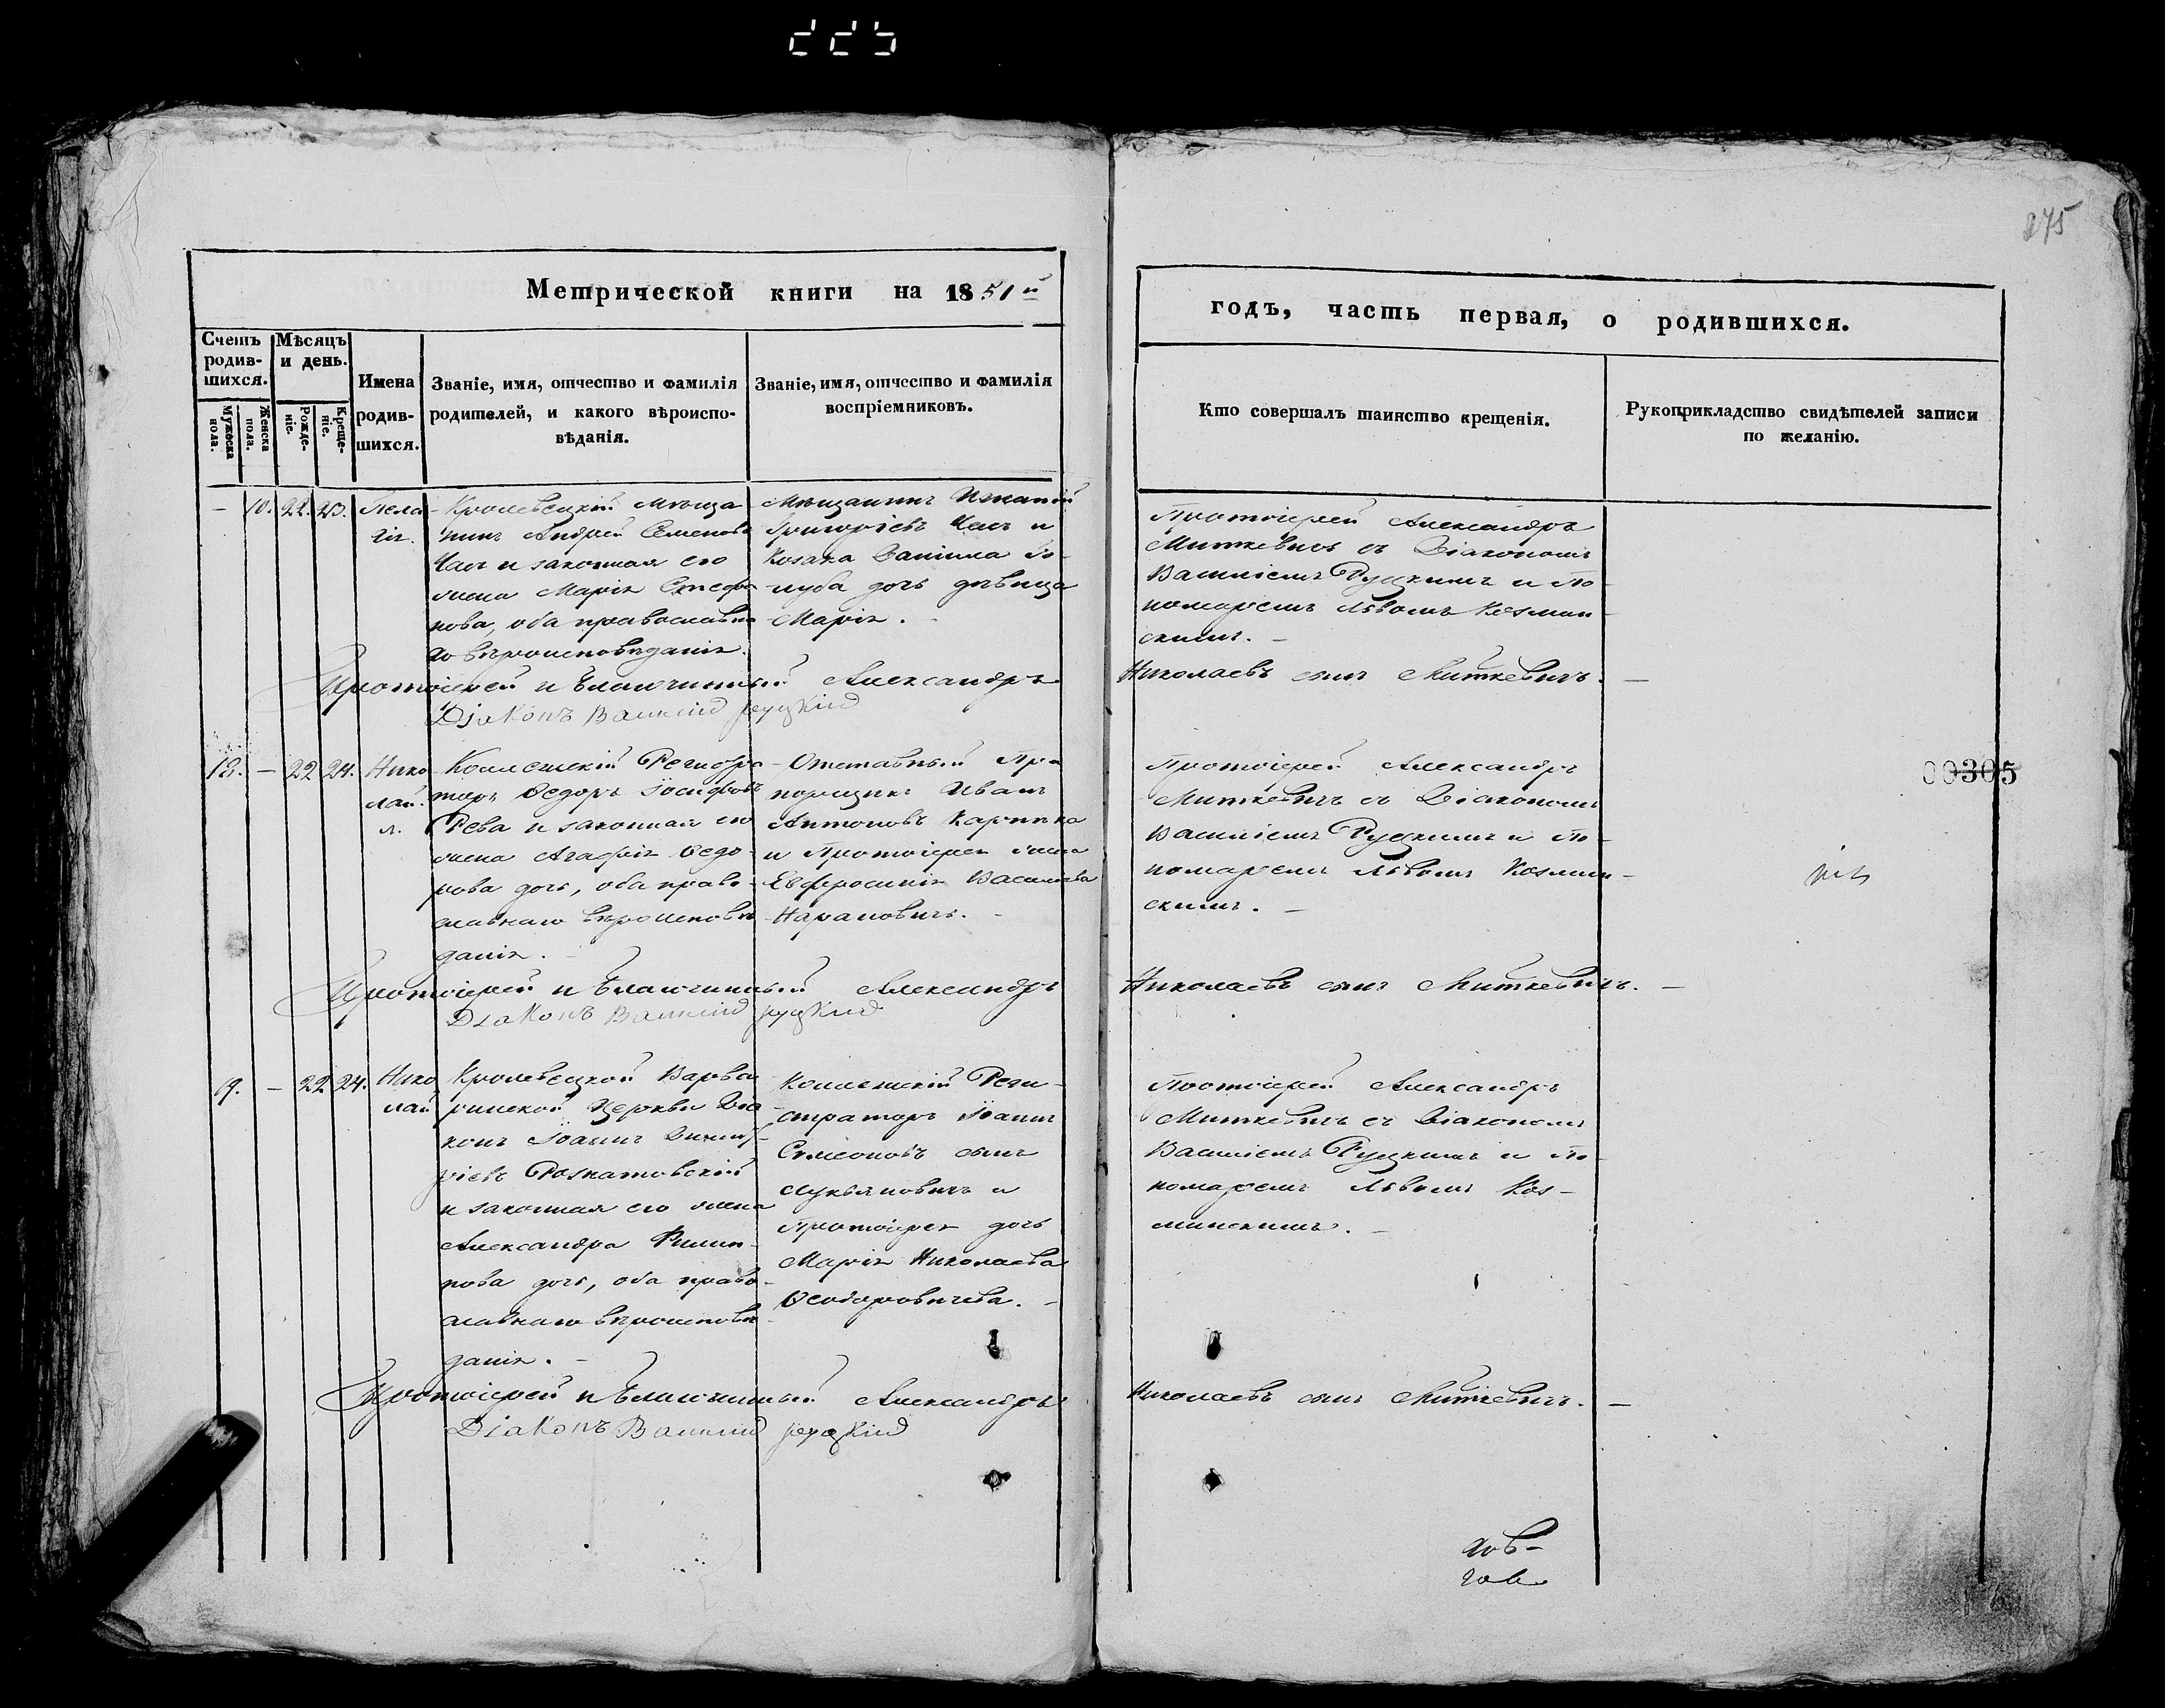 275
Метрической книги на 1851й
годъ, часть первая, о родившихся.
Счетъ родив-шихся.
Мужеска пола.
Женска пола.
Мѣсяцъ и день.
Рожде-ніе.
Креще-ніе.
Имена родив-шихся.
Званіе, имя, отчество и фамилія родителей, и какого вѣроиспо-вѣданія.
Званіе, имя, отчество и фамилія воспріемниковъ.
Кто совершалъ таинство крещенія.
Рукоприкладство свидѣтелей записи по желанію.
— 10. 22. 23.
Пела
гія.
Кролевецкій мѣща
нинъ Андрей Семеновъ
и законная его
жена Марія Стефа
нова, оба православна
го вѣроисповѣданія.
Мѣщанинъ Игнатій
Григорьевъ и
Козака Даніила Го-
луба дочь дѣвица
Марія.
Протоіерей Александръ
Миткевичъ съ Діакономъ
Василіемъ Руцкимъ и По-
номаремъ Львомъ Козмин
скимъ. —
Протоіерей и Благочинный Александръ Николаевъ сынъ Миткевичъ. —
Діаконъ Василій Руцкій
18. — 22 24.
Нико
лай.
Коллежскій Регистра
торъ Ѳедоръ Іосифовъ
Рева и законная его
жена Агафія Ѳедо-
рова дочь, оба право-
славнаго вѣроисповѣ
данія. —
Отставный Пра
порщикъ Иванъ
Антоновъ Карпека
и Протоіерея жена
Евфросинія Васильева
Нарановичъ. —
Протоіерей Александръ
Миткевичъ съ Діакономъ
Василіемъ Руцкимъ и По-
номаремъ Львомъ Козмин-
скимъ. —
00305
Протоіерей и Благочинный Александръ Николаевъ сынъ Миткевичъ. —
Діаконъ Василій Руцкій
19. — 22 24.
Нико
лай
Кролевецкой Варва
ринской Церкви Діа
конъ Іоаннъ Димит
ріевъ Рознатовскій
и законная его жена
Александра Филип-
пова дочь, оба право-
славнаго вѣроисповѣ
данія. —
Коллежскій Реги-
страторъ Іоаннъ
Симеоновъ сынъ
Лукьяновичъ и
Протоіерея дочь
Марія Николаева
Ѳеодоровичева. —
Протоіерей Александръ
Миткевичъ съ Діакономъ
Василіемъ Руцкимъ и По
номаремъ Львомъ Коз-
минскимъ. —
Протоіерей и Благочинный Александръ Николаевъ сынъ Миткевичъ. —
Діаконъ Василій Руцкій